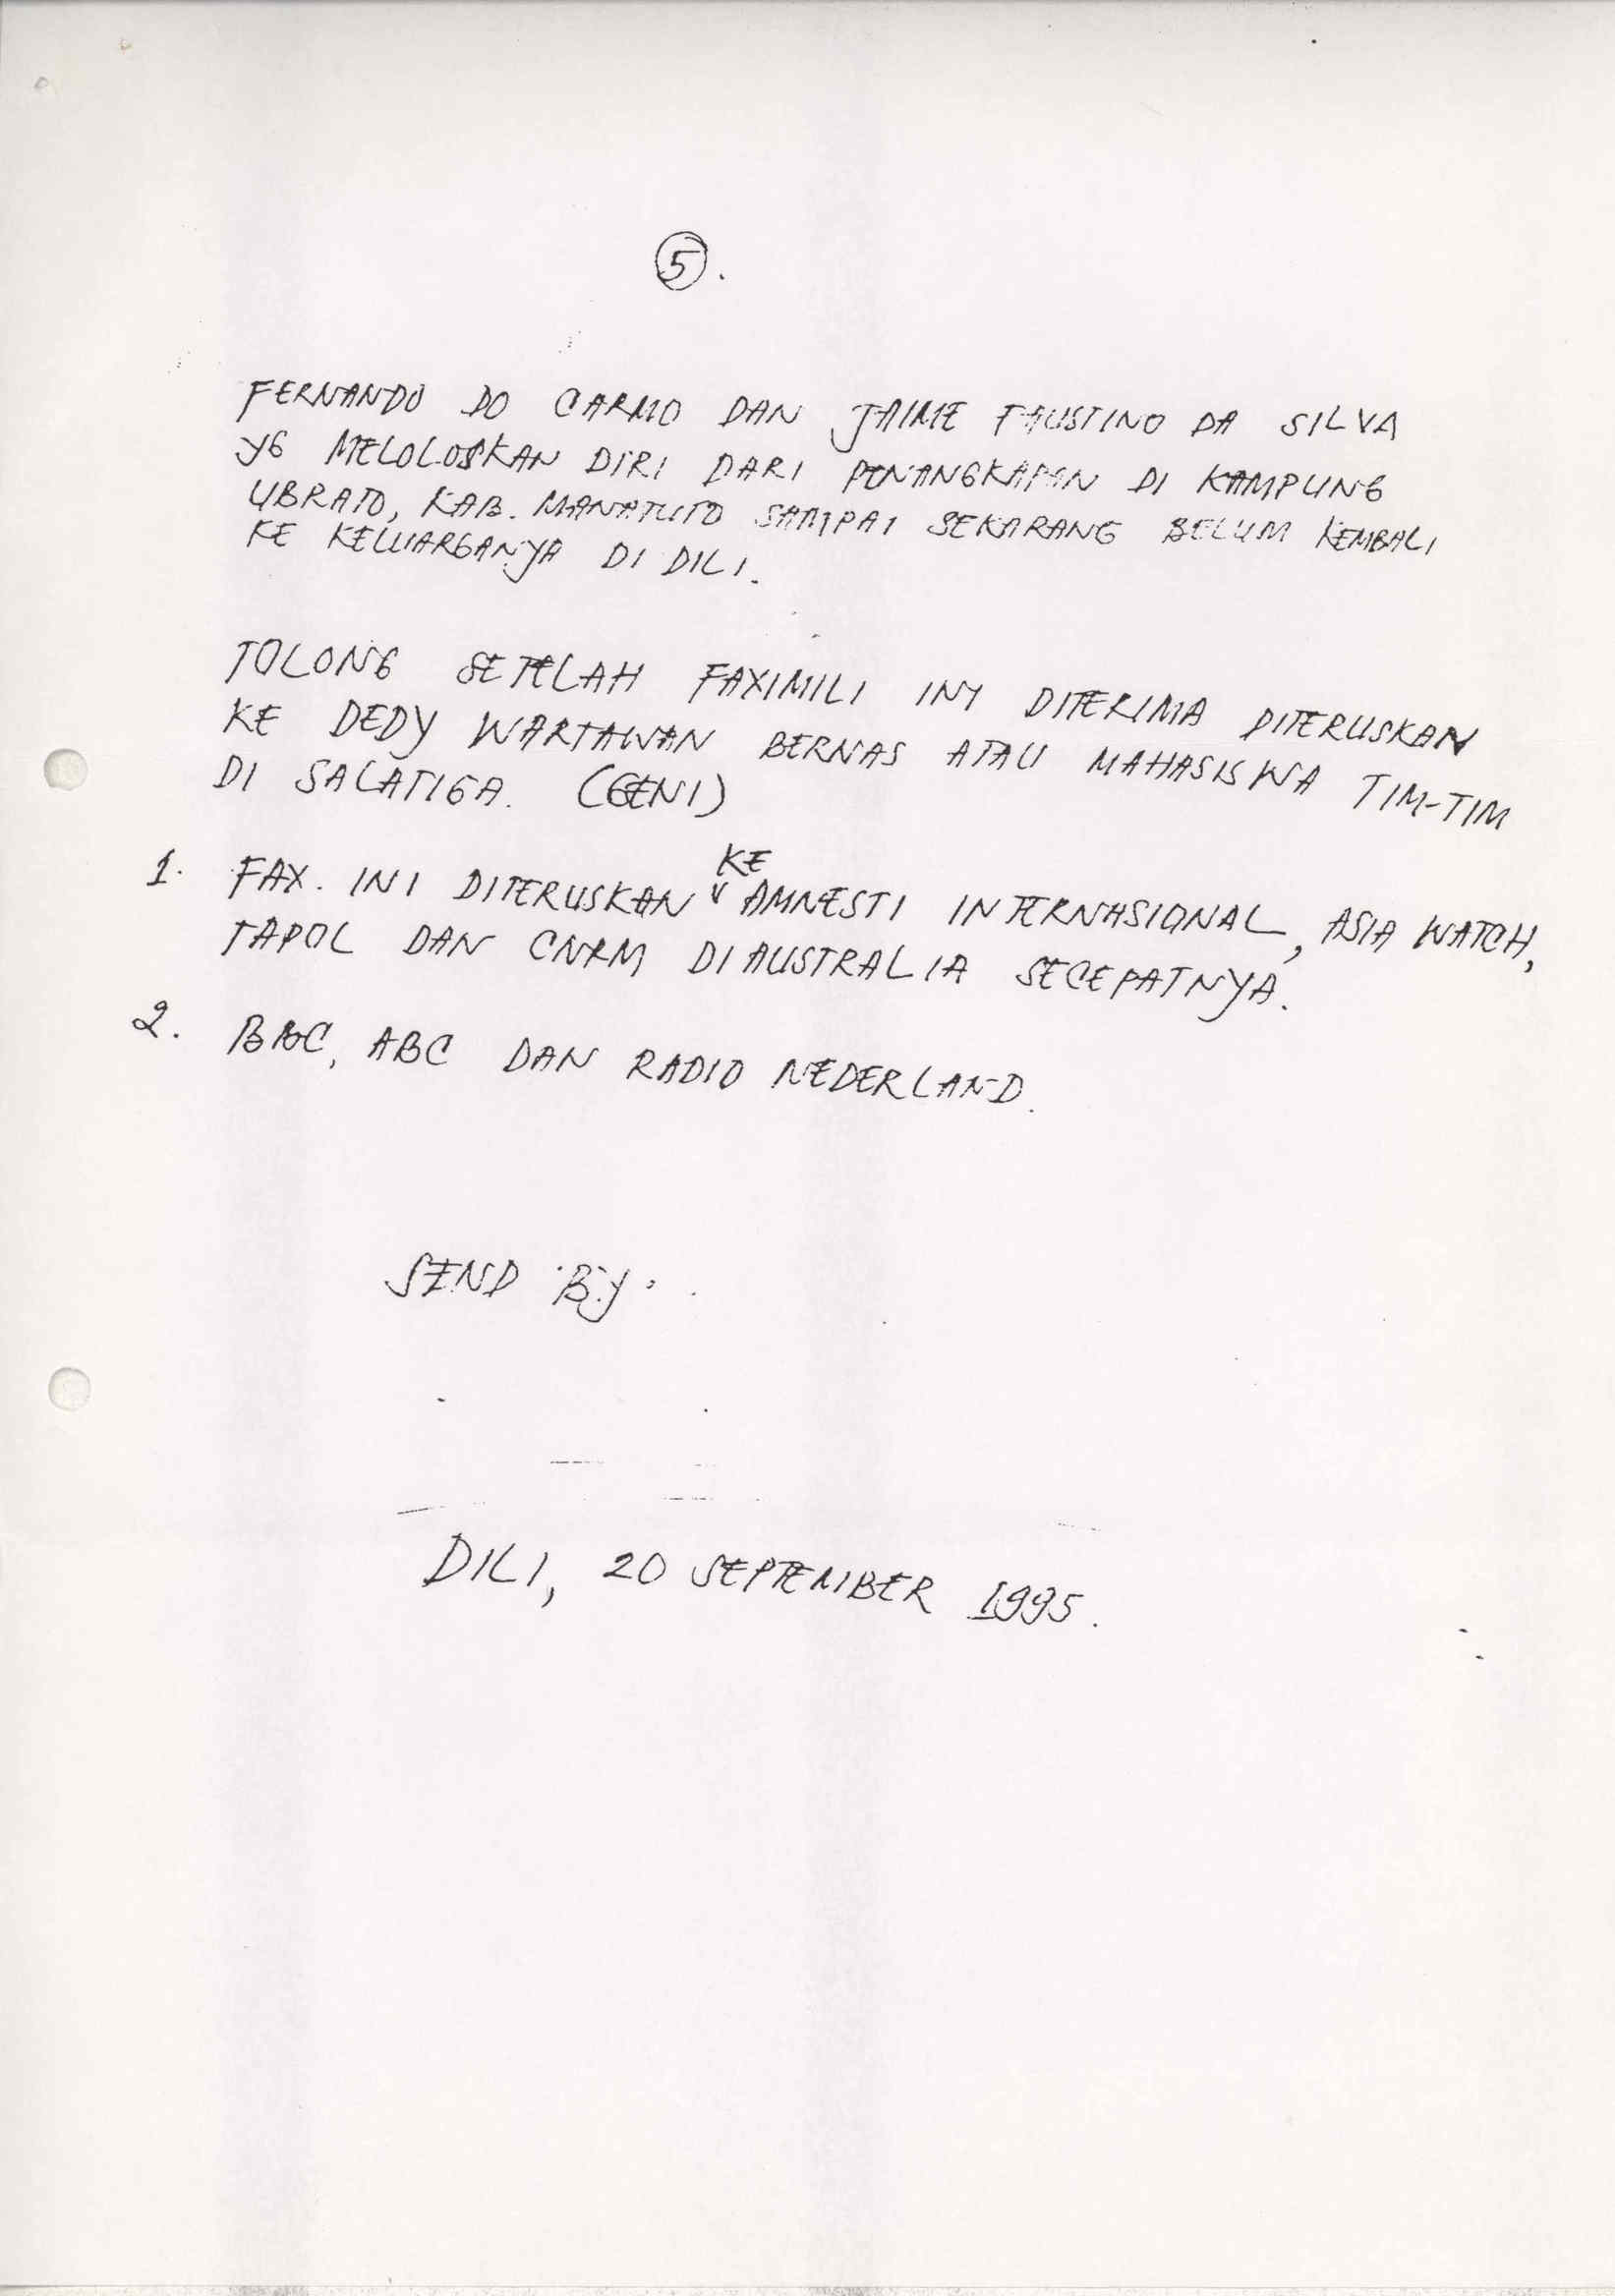 5.
FERNANDO DO CARMO DAN JAIME FAUSTINO DA SILVA
YG MELOLOSKAN DIRI DARI PENANGKAPAN DI KAMPUNG
UBRATO, KAB. MANATUTO SAMPAI SEKARANG BELUM KEMBALI
KE KELUARGANYA DI DILI.
TOLONG SETELAH FAXIMILI INI DITERIMA DITERUSKAN
KE DEDY WARTAWAN BERNAS ATAU MAHASISWA TIM-TIM
DI SALATIGA. (GENI)
1. FAX. INI DITERUSKAN KE AMNESTI INTERNASIONAL, ASIA WATCH,
TAPOL DAN CNRM DI AUSTRALIA SECEPATNYA.
2. BBC, ABC DAN RADIO NEDERLAND.
SEND BY:
DILI, 20 SEPTEMBER 1995.